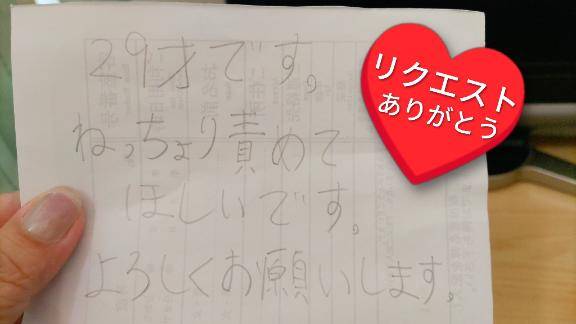 29才です。
ねっちょり責めて
ほしいです。
よろしくお願いします。
リクエスト
ありがとう